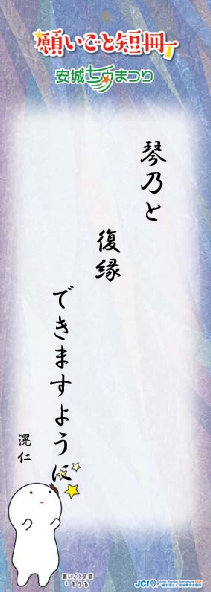 願いごと短冊
安城七夕まつり
琴乃と
復縁
できますように
滉仁
JCI